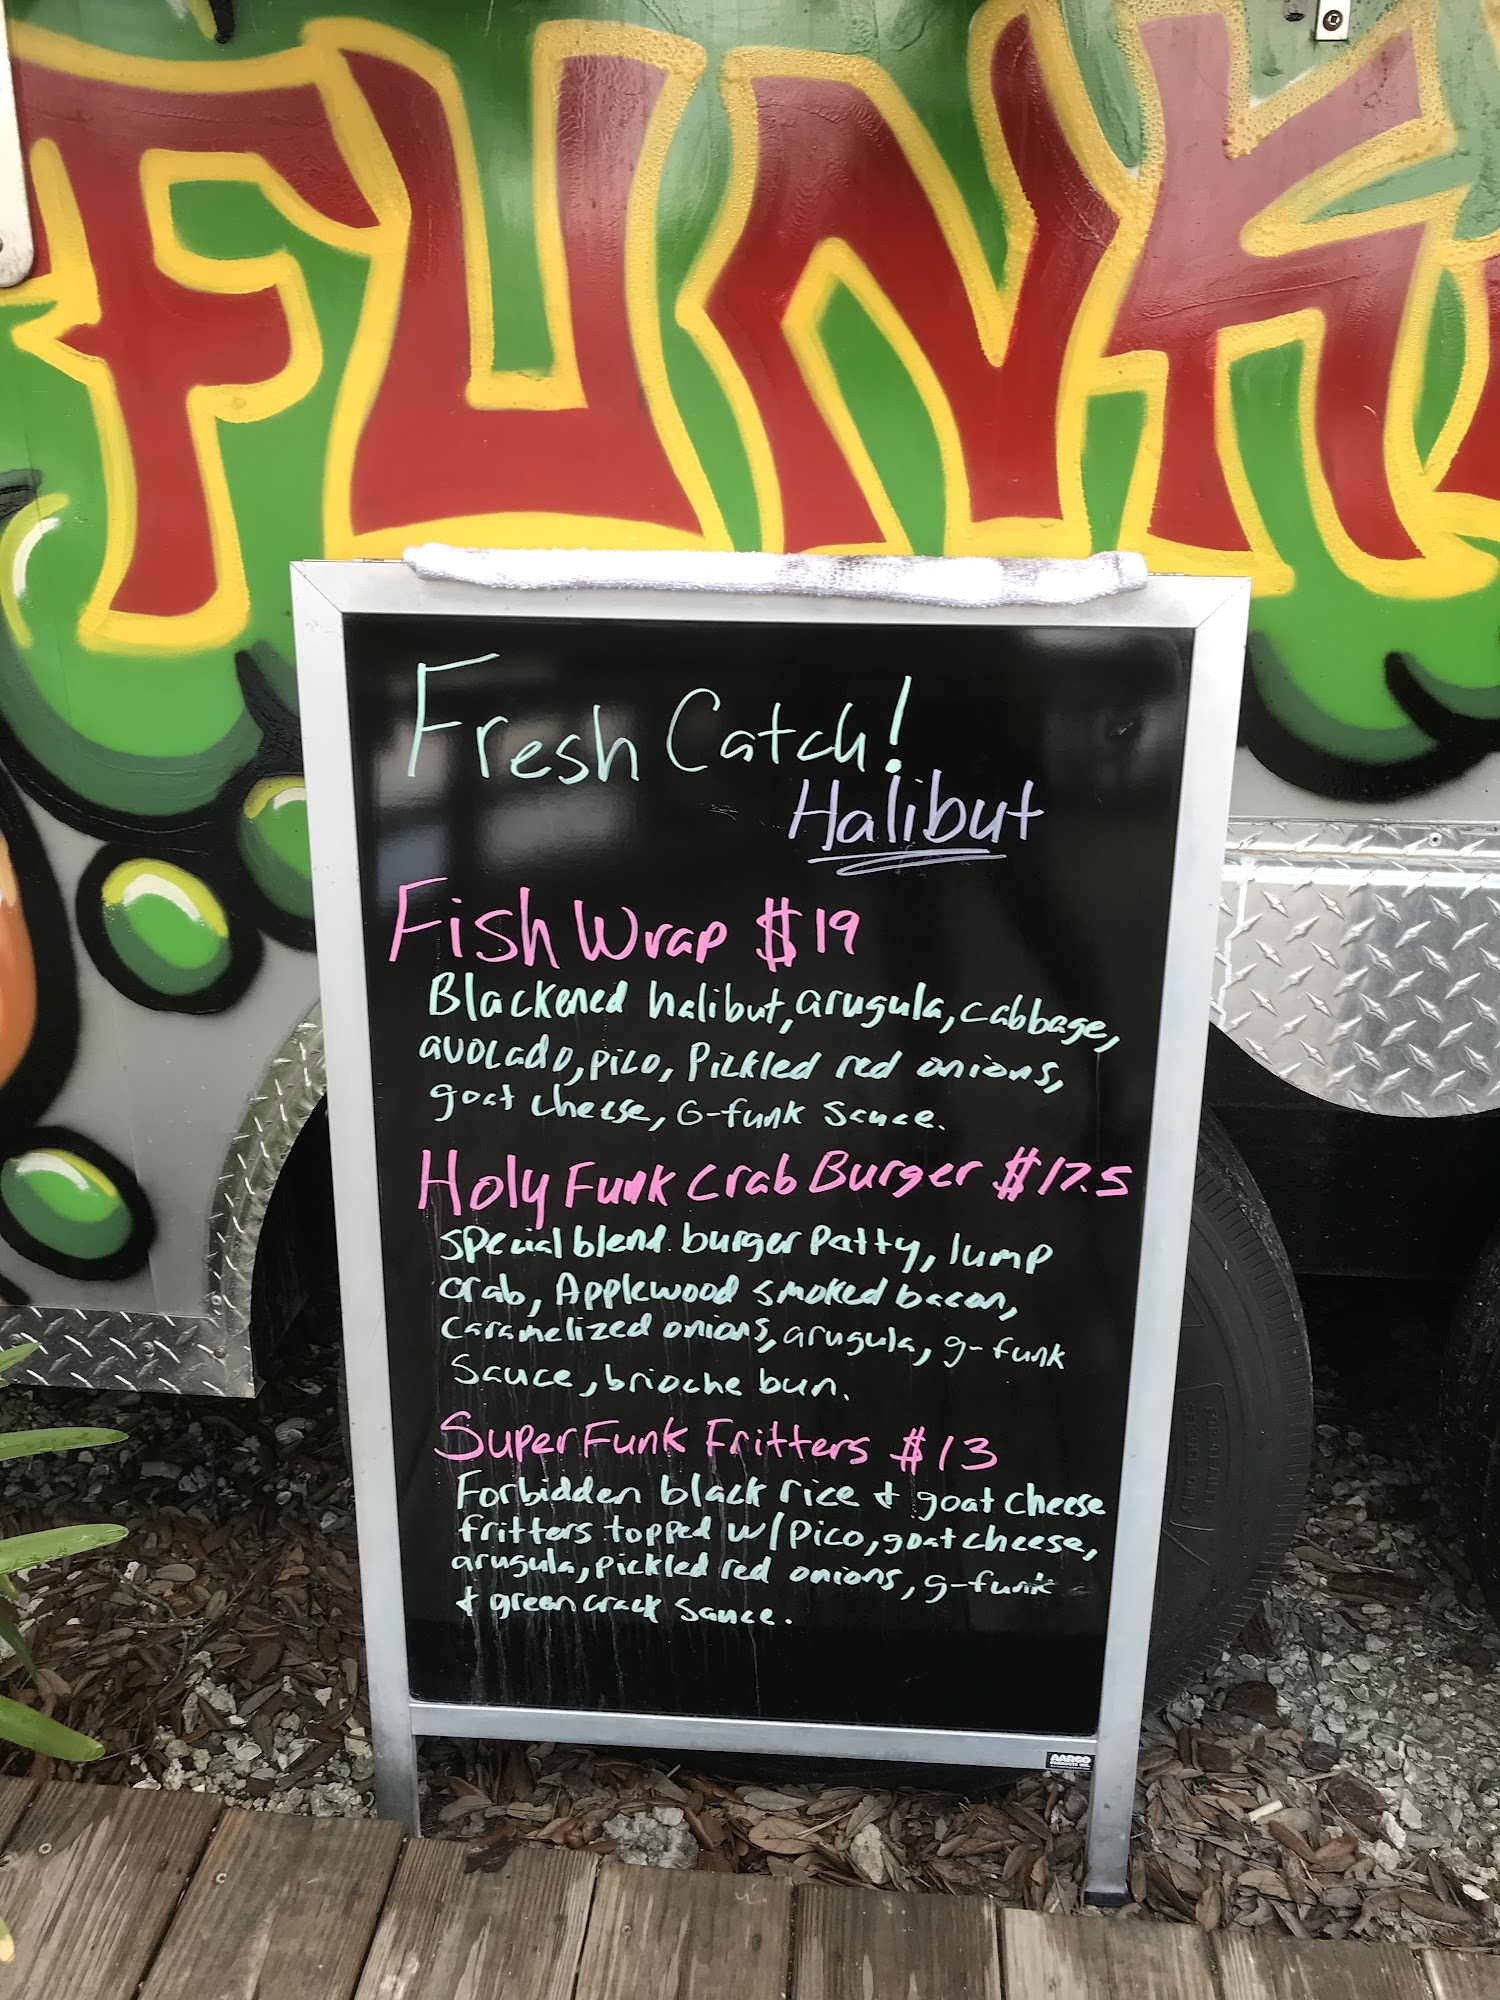 FUNK
Fresh Catch!
Halibut
Fish Wrap $19
Blackened halibut, arugula, cabbage,
avocado, pico, Pickled red onions,
goat cheese, G-funk sauce.
Holy Funk Crab Burger $17.5
special blend burger patty, lump
crab, Applewood smoked bacon,
caramelized onions, arugula, g-funk
sauce, brioche bun.
SuperFunk Fritters $13
Forbidden black rice & goat cheese
fritters topped w/ pico, goat cheese,
arugula, pickled red onions, g-funk
& green crack sauce.
AARCO